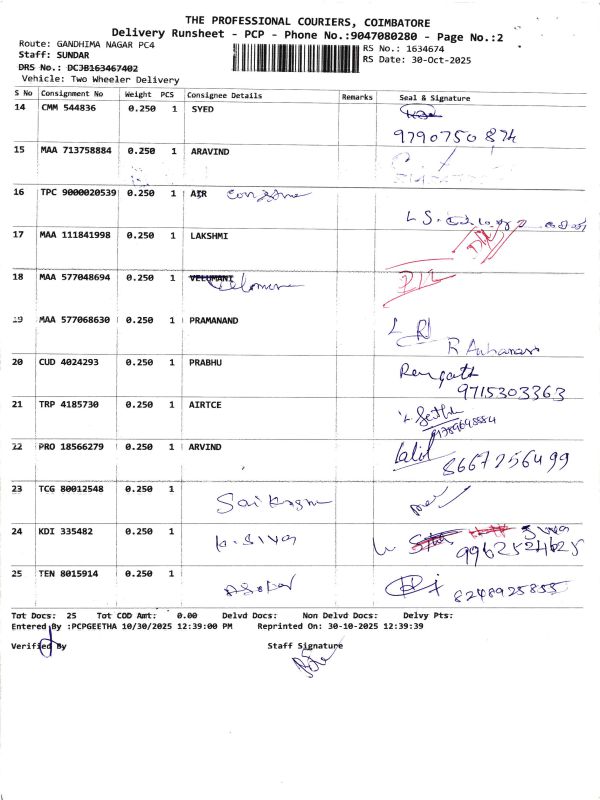 THE PROFESSIONAL COURIERS, COIMBATORE
Delivery Runsheet - PCP - Phone No.:9047080280 - Page No.:2
Route: GANDHIMA NAGAR PC4
RS No.: 1634674
Staff: SUNDAR
RS Date: 30-Oct-2025
DRS No.: DCJB163467402
Vehicle: Two Wheeler Delivery
S No Consignment No Weight PCS Consignee Details Remarks Seal & Signature
14 CMM 544836 0.250 1 SYED
9790750874
15 MAA 713758884 0.250 1 ARAVIND
16 TPC 9000020539 0.250 1 AIR
17 MAA 111841998 0.250 1 LAKSHMI
18 MAA 577048694 0.250 1 VELUMANI
19 MAA 577068630 0.250 1 PRAMANAND
20 CUD 4024293 0.250 1 PRABHU
9715303363
21 TRP 4185730 0.250 1 AIRTCE
22 PRO 18566279 0.250 1 ARVIND Lalid
8667256499
23 TCG 80012548 0.250 1
24 KDI 335482 0.250 1 K. SIVA Siva
9962524625
25 TEN 8015914 0.250 1 ASOKAN
8248925855
Tot Docs: 25 Tot COD Amt: 0.00 Delvd Docs: Non Delvd Docs: Delvy Pts:
Entered By :PCPGEETHA 10/30/2025 12:39:00 PM Reprinted On: 30-10-2025 12:39:39
Verified By Staff Signature